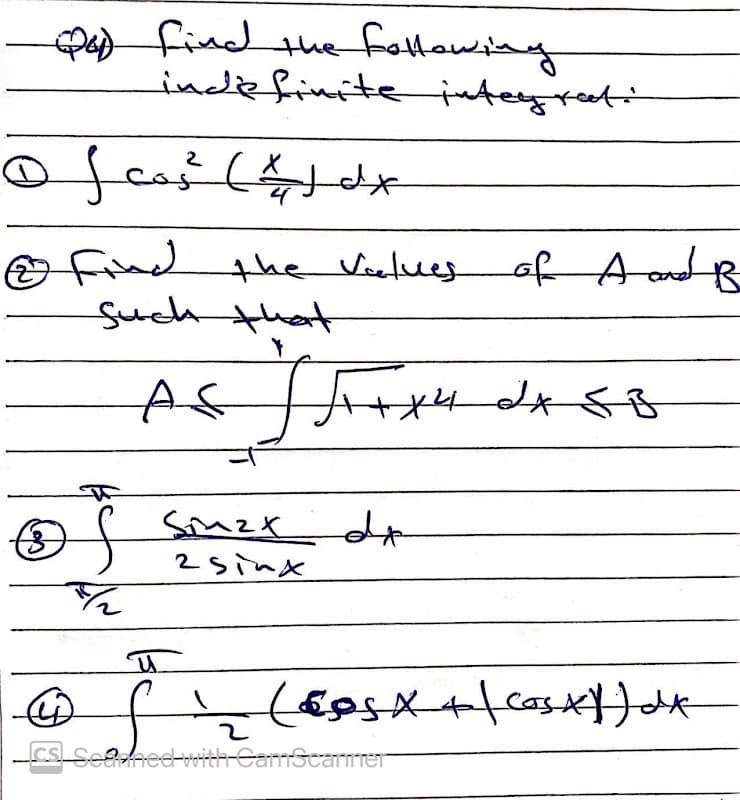 Q4) Find the following
indefinite integral:
① ∫ cos² (x/4) dx
② Find the values of A and B
such that
A ≤ ∫₋₁¹ √1+x4 dx ≤ B
③ ∫_{π/2}^{π} sin2x / 2 sinx dx
④ ∫₀^π 1/2 (cosx + |cosx|) dx
CS Scanned with CamScanner